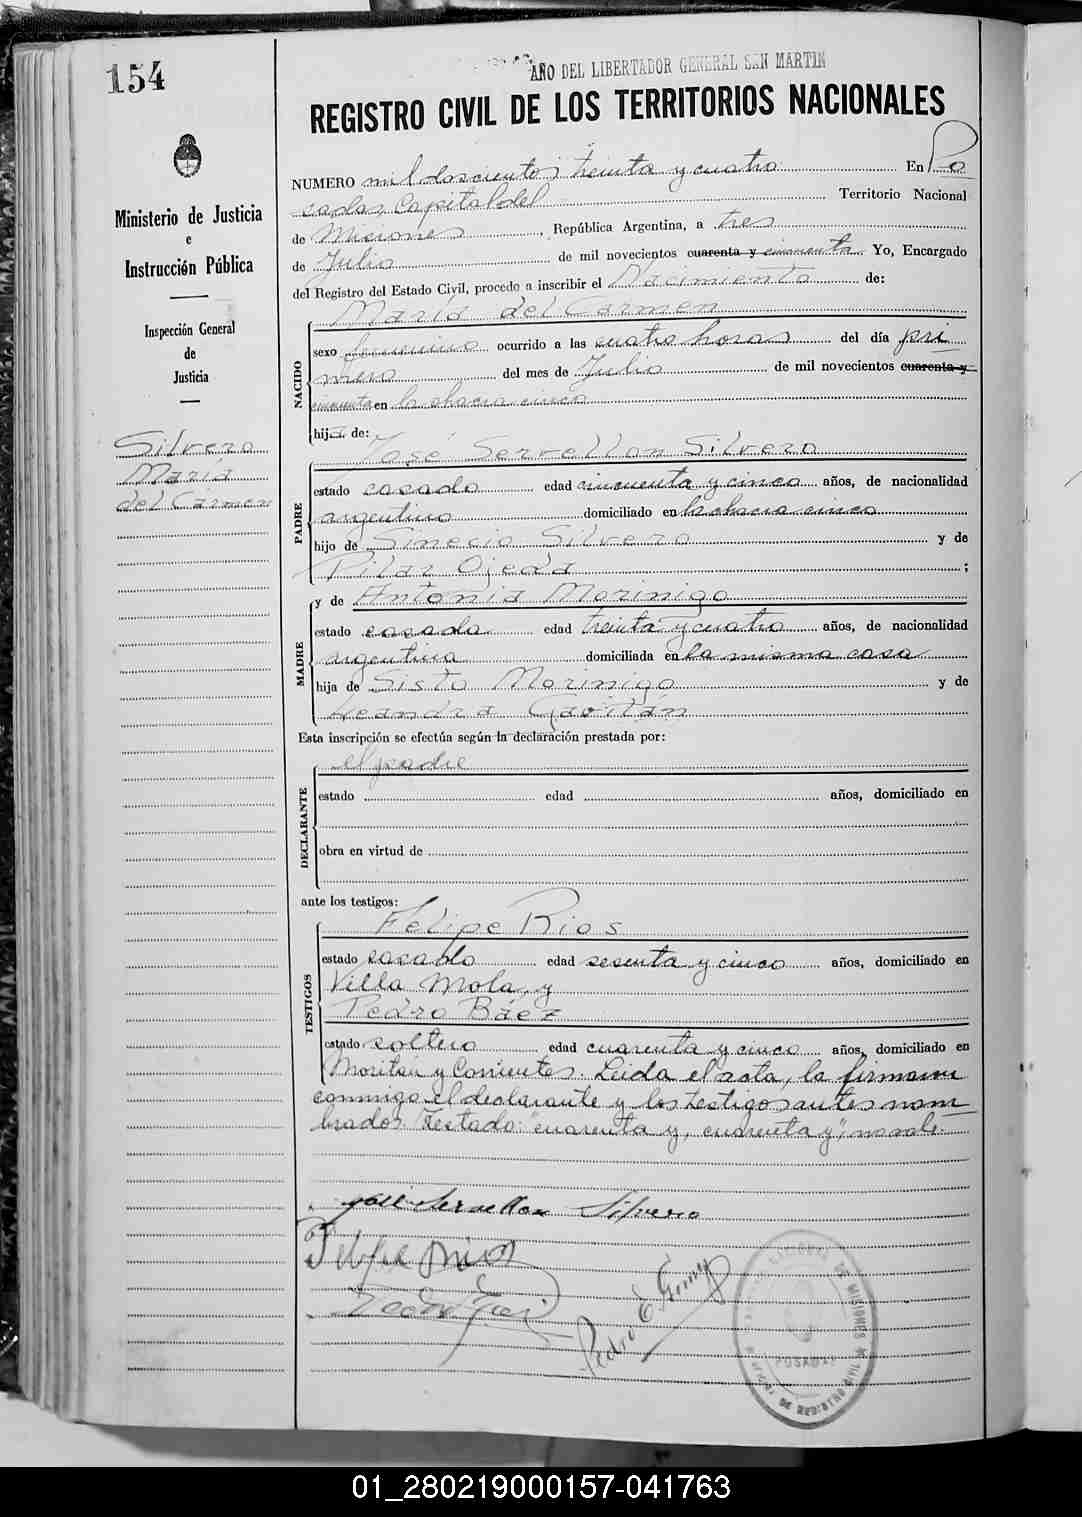 154
AÑO DEL LIBERTADOR GENERAL SAN MARTIN
REGISTRO CIVIL DE LOS TERRITORIOS NACIONALES
Ministerio de Justicia
e
Instrucción Pública
Inspección General
de
Justicia
Silvero
María
del Carmen
NUMERO mil doscientos treinta y cuatro En Po
sadas, Capital del Territorio Nacional
de Misiones, República Argentina, a tres
de Julio de mil novecientos cuarenta y cincuenta. Yo, Encargado
del Registro del Estado Civil, procedo a inscribir el Nacimiento de:
María del Carmen
NACIDO
sexo femenino ocurrido a las cuatro horas del día pri
mero del mes de Julio de mil novecientos cuarenta y
cincuenta en la chacra cinco
hija de:
José Servellon Silvero
PADRE
estado casado edad cincuenta y cinco años, de nacionalidad
argentino domiciliado en la chacra cinco
hijo de Sinecio Silvero y de
Pilar Ojeda ;
y de Antonia Morinigo
MADRE
estado casada edad treinta y cuatro años, de nacionalidad
argentina domiciliada en la misma casa
hija de Sisto Morinigo y de
Leandra Gavilán
Esta inscripción se efectúa según la declaración prestada por:
el padre
DECLARANTE
estado edad años, domiciliado en
obra en virtud de
ante los testigos:
Felipe Rios
TESTIGOS
estado casado edad sesenta y cinco años, domiciliado en
Villa Mola, y
Pedro Báez
estado soltero edad cuarenta y cinco años, domiciliado en
Moritan y Corrientes. Leida el acta, la firmaron
conmigo el declarante y los testigos antes nom
brados. Testado: "cuarenta y, cuarenta y", no vale.
José Servellon Silvero
Felipe Rios
Pedro E. Gomez
POSADAS
01_280219000157-041763